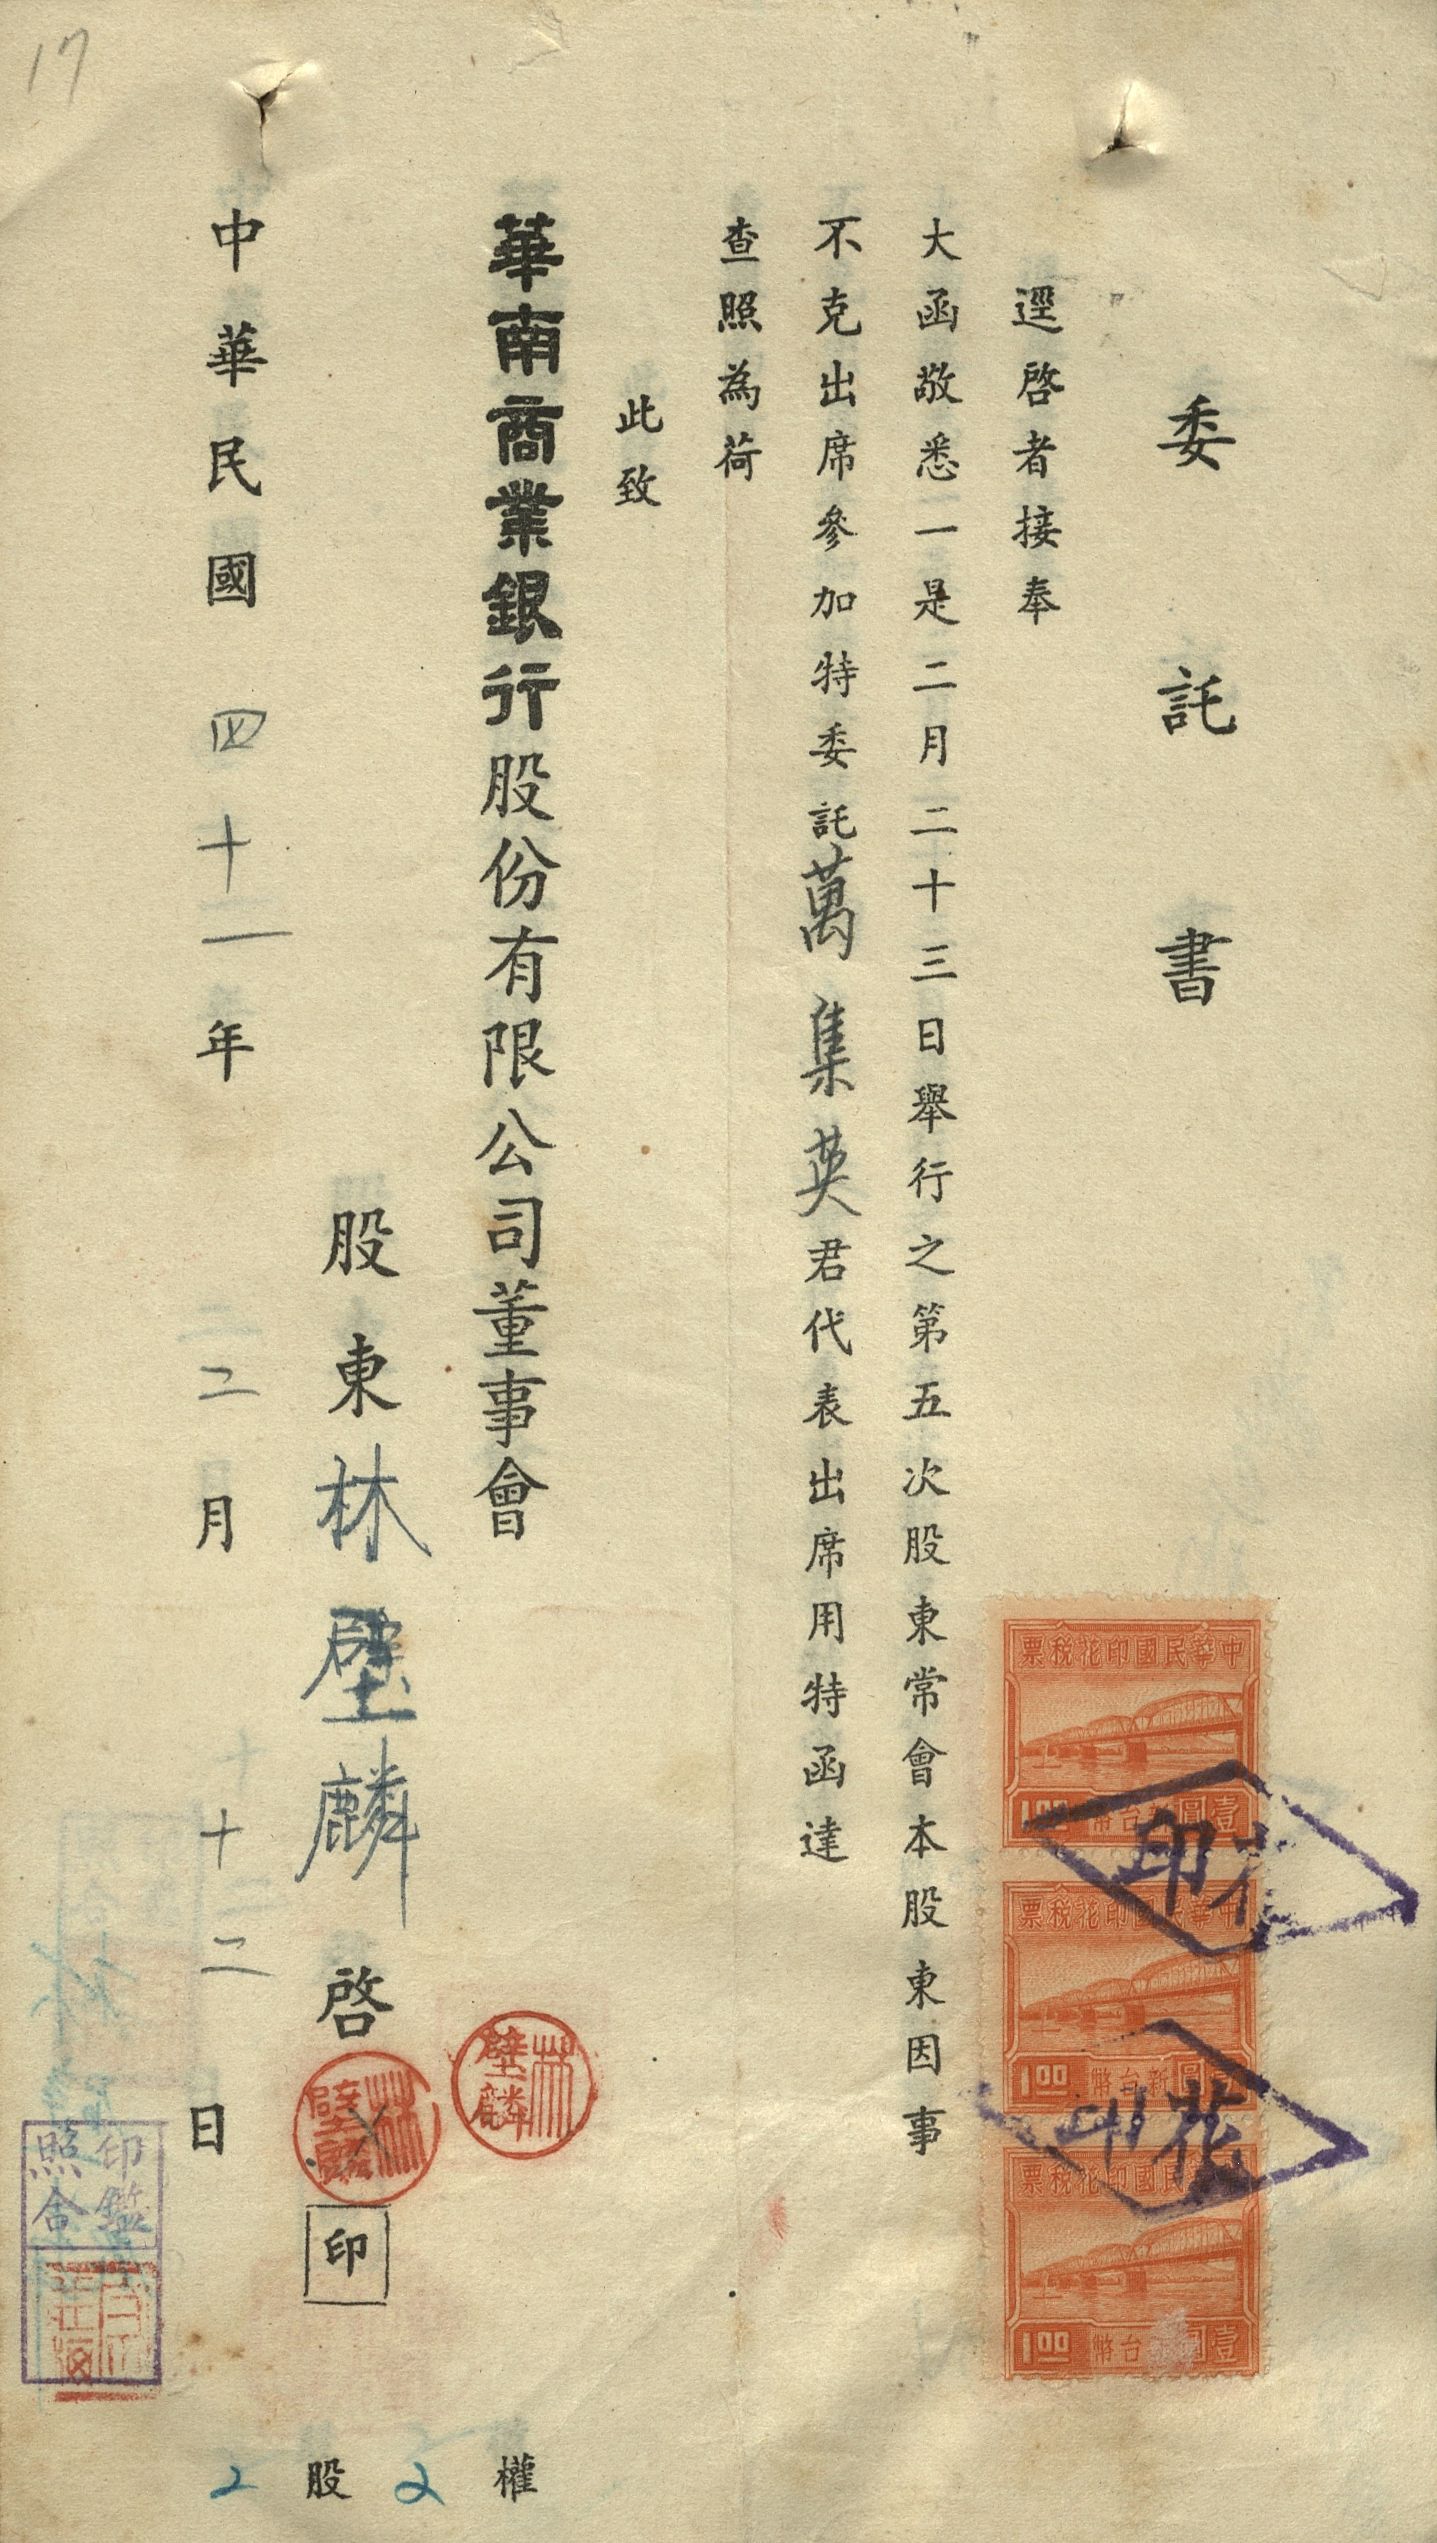 17
委託書
逕啓者接奉
大函敬悉一是二月二十三日舉行之第五次股東常會本股東因事
不克出席參加特委託萬集英君代表出席用特函達
查照為荷
此致
華南商業銀行股份有限公司董事會
股東林壁麟啓
印
中華民國四十一年二月十二日
2股2權
林壁麟
林壁麟
印鑑
照合
中華民國印花稅票
壹圓新台幣
1.00
中華民國印花稅票
壹圓新台幣
1.00
中華民國印花稅票
壹圓新台幣
1.00
印花
印花